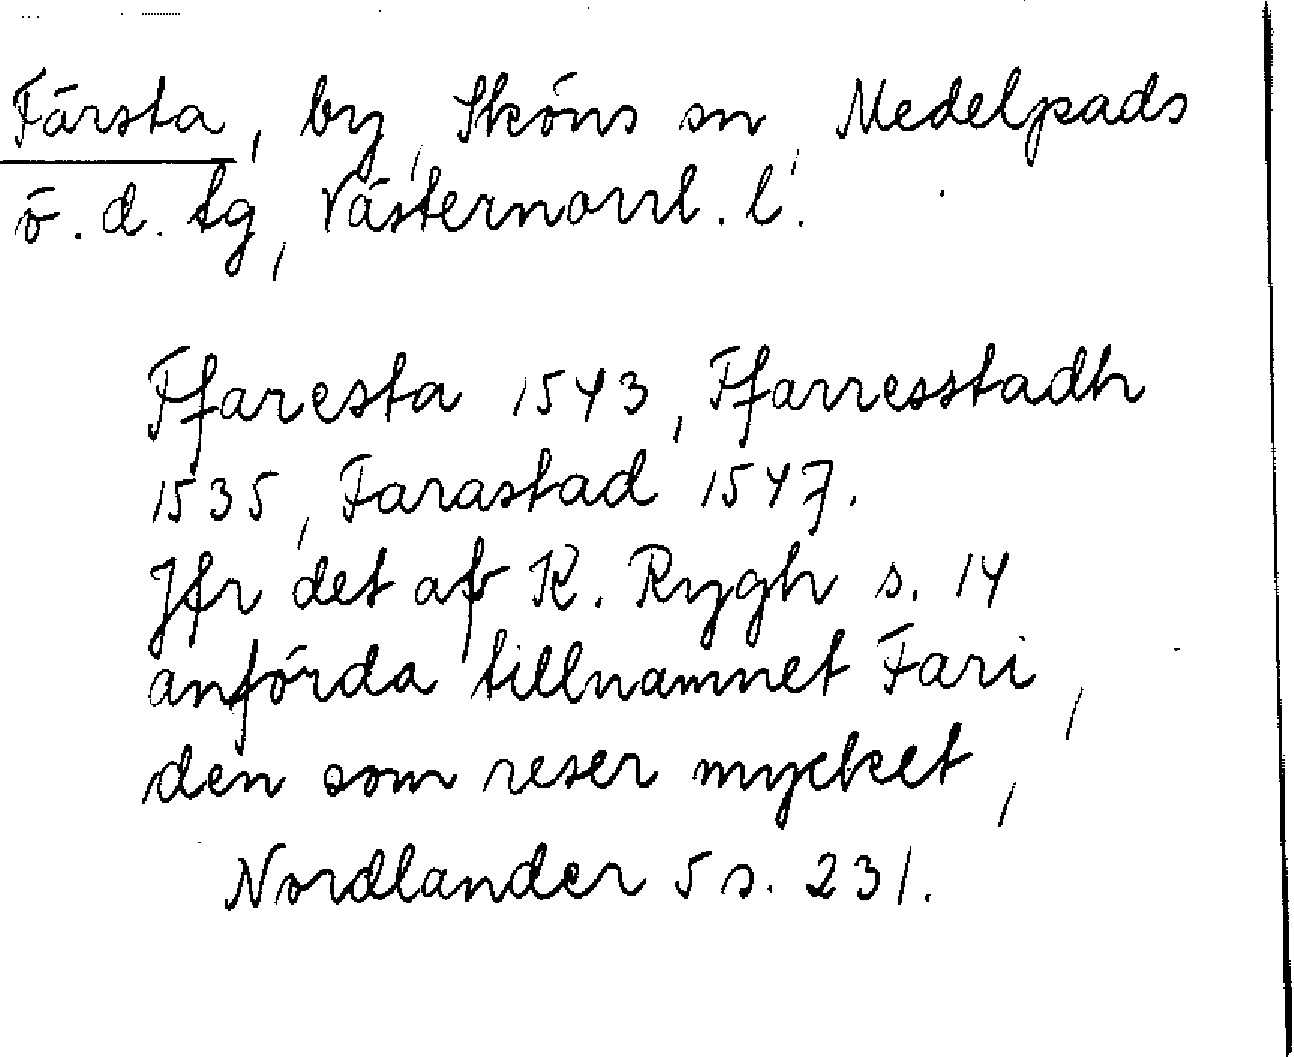 Färsta, by, Sköns sn, Medelpads
ö. d. tg, Västernorrl. l.
Ffaresta 1543, Ffarresstadh
1535, Farastad 1547.
Jfr det af K. Rygh s. 14
anförda tillnamnet Fari,
den som reser mycket,
Nordlander 5 s. 231.